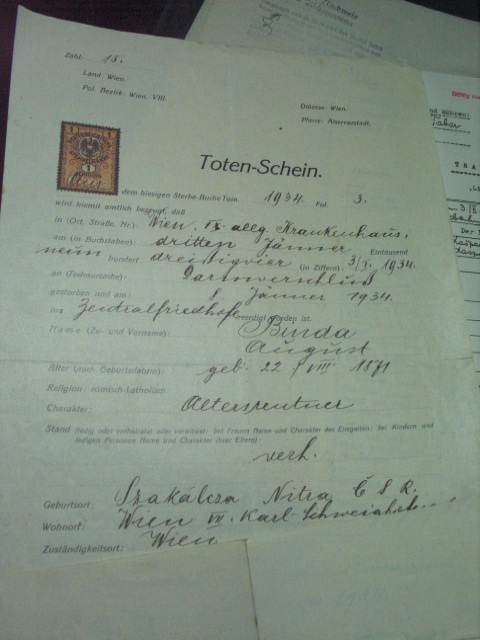 Zahl: 18.
Land: Wien.
Pol. Bezirk: Wien, VIII.
Diözese: Wien.
Pfarre: Alservorstadt.
Toten-Schein.
1 1
dem hiesigen Sterbe-Buche Tom. 1934. Fol. 3.
wird hiemit amtlich bezeugt, daß
in (Ort, Straße, Nr.): Wien, IX. allg. Krankenhaus,
am (in Buchstaben): dritten Jänner Eintausend
neun hundert dreißigvier (in Ziffern): 3/I. 1934.
an (Todesursache): Darmverschluß
gestorben und am 8. Jänner 1934.
im Zentralfriedhofe beerdigt worden ist.
Name (Zu- und Vorname): Binda
August
Alter (nach Geburtsdatum): geb. 22./VIII. 1871
Religion: römisch-katholisch.
Charakter: Altersrentner
Stand (ledig oder verheiratet oder verwitwet; bei Frauen Name und Charakter des Ehegatten; bei Kindern und
ledigen Personen Name und Charakter ihrer Eltern):
verh.
Geburtsort: Szakálcza Nitra Č S R.
Wohnort: Wien
Zuständigkeitsort: Wien
Tabor
TRA